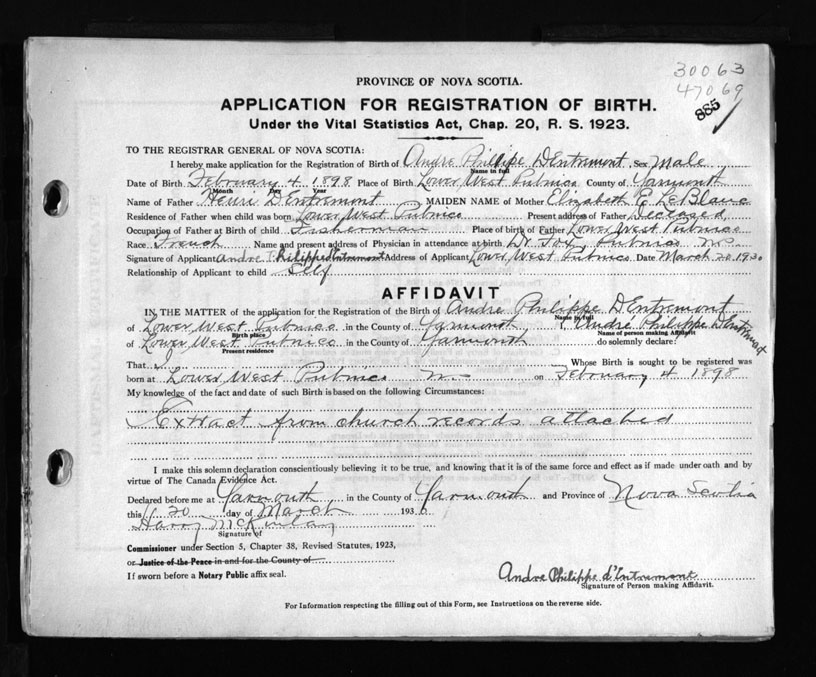 30063
47069
885
PROVINCE OF NOVA SCOTIA.
APPLICATION FOR REGISTRATION OF BIRTH.
Under the Vital Statistics Act, Chap. 20, R. S. 1923.
TO THE REGISTRAR GENERAL OF NOVA SCOTIA:
I hereby make application for the Registration of Birth of Andre Phillipe D'Entremont Sex Male
Name in full
Date of Birth February 4 1898 Place of Birth Lower West Pubnico County of Yarmouth
Month Day Year
Name of Father Henri D'Entremont MAIDEN NAME of Mother Elizabeth E. LeBlanc
Residence of Father when child was born Lower West Pubnico Present address of Father Deceased
Occupation of Father at Birth of child Fisherman Place of birth of Father Lower West Pubnico
Race French Name and present address of Physician in attendance at birth Dr Fox, Pubnico N.S.
Signature of Applicant Andre Philippe d'Entremont Address of Applicant Lower West Pubnico Date March 20 1930
Relationship of Applicant to child Self
AFFIDAVIT
IN THE MATTER of the application for the Registration of the Birth of Andre Philippe D'Entremont
Name in full
of Lower West Pubnico in the County of Yarmouth I, André Philippe D'Entremont
Birth place Name of person making Affidavit
of Lower West Pubnico in the County of Yarmouth do solemnly declare:
Present residence
That I Whose Birth is sought to be registered was
born at Lower West Pubnico N.S. on February 4 1898
My knowledge of the fact and date of such Birth is based on the following Circumstances:
Extract from church records attached
I make this solemn declaration conscientiously believing it to be true, and knowing that it is of the same force and effect as if made under oath and by
virtue of The Canada Evidence Act.
Declared before me at Yarmouth in the County of Yarmouth and Province of Nova Scotia
this 20 day of March 1930
Harry McKinlay
Signature of
Commissioner under Section 5, Chapter 38, Revised Statutes, 1923,
or Justice of the Peace in and for the County of
If sworn before a Notary Public affix seal.
Andre Philippe d'Entremont
Signature of Person making Affidavit.
For Information respecting the filling out of this Form, see Instructions on the reverse side.